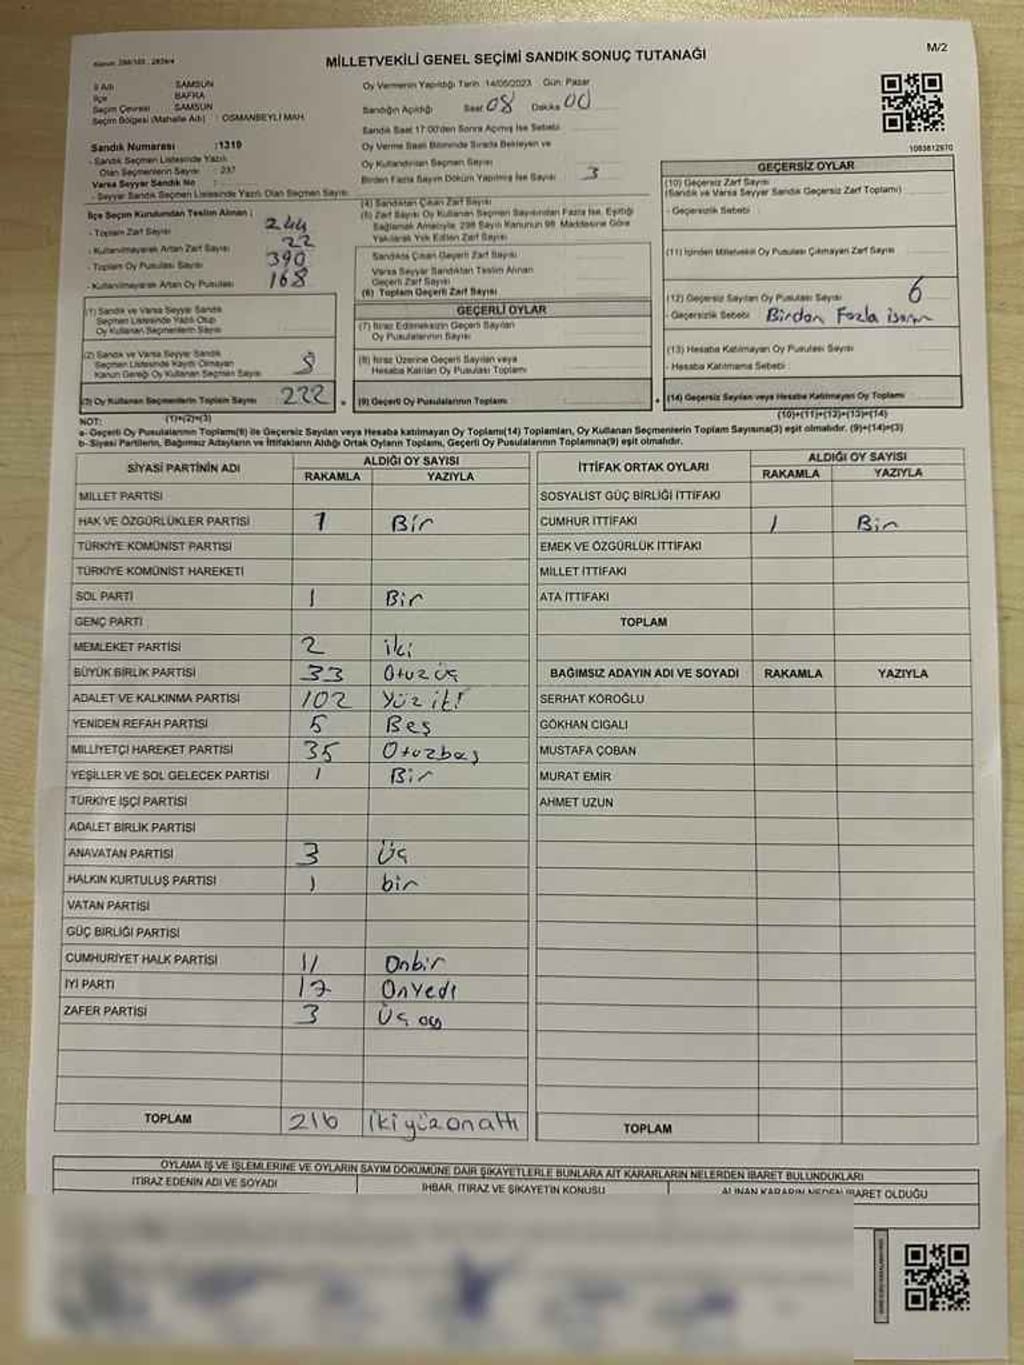 MİLLETVEKİLİ GENEL SEÇİMİ SANDIK SONUÇ TUTANAĞI
M/2
İl Adı SAMSUN
İlçe BAFRA
Seçim Çevresi SAMSUN
Seçim Bölgesi (Mahalle Adı) : OSMANBEYLİ MAH.
Sandık Numarası :1319
- Sandık Seçmen Listesinde Yazılı
Olan Seçmenlerin Sayısı : 237
Varsa Seyyar Sandık No :
- Seyyar Sandık Seçmen Listesinde Yazılı Olan Seçmen Sayısı:
Oy Vermenin Yapıldığı Tarih 14/05/2023 Gün: Pazar
Sandığın Açıldığı Saat 08 Dakika 00
Sandık Saat 17:00'den Sonra Açılmış İse Sebebi
Oy Verme Saati Bitiminde Sırada Bekleyen ve
Oy Kullandırılan Seçmen Sayısı
Birden Fazla Sayım Döküm Yapılmış İse Sayısı 3
İlçe Seçim Kurulundan Teslim Alınan :
- Toplam Zarf Sayısı 244
- Kullanılmayarak Artan Zarf Sayısı 22
- Toplam Oy Pusulası Sayısı 390
- Kullanılmayarak Artan Oy Pusulası 168
(1) Sandık ve Varsa Seyyar Sandık
Seçmen Listesinde Yazılı Olup
Oy Kullanan Seçmenlerin Sayısı
(2) Sandık ve Varsa Seyyar Sandık
Seçmen Listesinde Kayıtlı Olmayan
Kanun Gereği Oy Kullanan Seçmen Sayısı 8
(3) Oy Kullanan Seçmenlerin Toplam Sayısı 222
(1)+(2)=(3)
(4) Sandıktan Çıkan Zarf Sayısı
(5) Zarf Sayısı Oy Kullanan Seçmen Sayısından Fazla İse, Eşitliği
Sağlamak Amacıyla, 298 Sayılı Kanunun 98. Maddesine Göre
Yakılarak Yok Edilen Zarf Sayısı
Sandıkta Çıkan Geçerli Zarf Sayısı
Varsa Seyyar Sandıktan Teslim Alınan
Geçerli Zarf Sayısı
(6) Toplam Geçerli Zarf Sayısı
GEÇERLİ OYLAR
(7) İtiraz Edilmeksizin Geçerli Sayılan
Oy Pusulalarının Sayısı
(8) İtiraz Üzerine Geçerli Sayılan veya
Hesaba Katılan Oy Pusulası Toplamı
(9) Geçerli Oy Pusulalarının Toplamı
GEÇERSİZ OYLAR
(10) Geçersiz Zarf Sayısı
(Sandık ve Varsa Seyyar Sandık Geçersiz Zarf Toplamı)
- Geçersizlik Sebebi :
(11) İçinden Milletvekili Oy Pusulası Çıkmayan Zarf Sayısı
(12) Geçersiz Sayılan Oy Pusulası Sayısı 6
- Geçersizlik Sebebi Birden Fazla
(13) Hesaba Katılmayan Oy Pusulası Sayısı
- Hesaba Katılmama Sebebi :
(14) Geçersiz Sayılan veya Hesaba Katılmayan Oy Toplamı
(10)+(11)+(12)+(13)=(14)
NOT:
a- Geçerli Oy Pusulalarının Toplamı(9) ile Geçersiz Sayılan veya Hesaba katılmayan Oy Toplamı(14) Toplamları, Oy Kullanan Seçmenlerin Toplam Sayısına(3) eşit olmalıdır. (9)+(14)=(3)
b- Siyasi Partilerin, Bağımsız Adayların ve İttifakların Aldığı Ortak Oyların Toplamı, Geçerli Oy Pusulalarının Toplamına(9) eşit olmalıdır.
SİYASİ PARTİNİN ADI ALDIĞI OY SAYISI
RAKAMLA YAZIYLA
MİLLET PARTİSİ
HAK VE ÖZGÜRLÜKLER PARTİSİ 1 Bir
TÜRKİYE KOMÜNİST PARTİSİ
TÜRKİYE KOMÜNİST HAREKETİ
SOL PARTİ 1 Bir
GENÇ PARTİ
MEMLEKET PARTİSİ 2 iki
BÜYÜK BİRLİK PARTİSİ 33 Otuz üç
ADALET VE KALKINMA PARTİSİ 102 Yüz iki
YENİDEN REFAH PARTİSİ 5 Beş
MİLLİYETÇİ HAREKET PARTİSİ 35 Otuzbeş
YEŞİLLER VE SOL GELECEK PARTİSİ 1 Bir
TÜRKİYE İŞÇİ PARTİSİ
ADALET BİRLİK PARTİSİ
ANAVATAN PARTİSİ 3 Üç
HALKIN KURTULUŞ PARTİSİ 1 bir
VATAN PARTİSİ
GÜÇ BİRLİĞİ PARTİSİ
CUMHURİYET HALK PARTİSİ 11 Onbir
İYİ PARTİ 17 Onyedi
ZAFER PARTİSİ 3 Üç oy
TOPLAM 216 ikiyüzonaltı
İTTİFAK ORTAK OYLARI ALDIĞI OY SAYISI
RAKAMLA YAZIYLA
SOSYALİST GÜÇ BİRLİĞİ İTTİFAKI
CUMHUR İTTİFAKI 1 Bir
EMEK VE ÖZGÜRLÜK İTTİFAKI
MİLLET İTTİFAKI
ATA İTTİFAKI
TOPLAM
BAĞIMSIZ ADAYIN ADI VE SOYADI RAKAMLA YAZIYLA
SERHAT KÖROĞLU
GÖKHAN CIGALI
MUSTAFA ÇOBAN
MURAT EMİR
AHMET UZUN
TOPLAM
OYLAMA İŞ VE İŞLEMLERİNE VE OYLARIN SAYIM DÖKÜMÜNE DAİR ŞİKAYETLERLE BUNLARA AİT KARARLARIN NELERDEN İBARET BULUNDUKLARI
İTİRAZ EDENİN ADI VE SOYADI İHBAR, İTİRAZ VE ŞİKAYETİN KONUSU ALINAN KARARIN NEDEN İBARET OLDUĞU